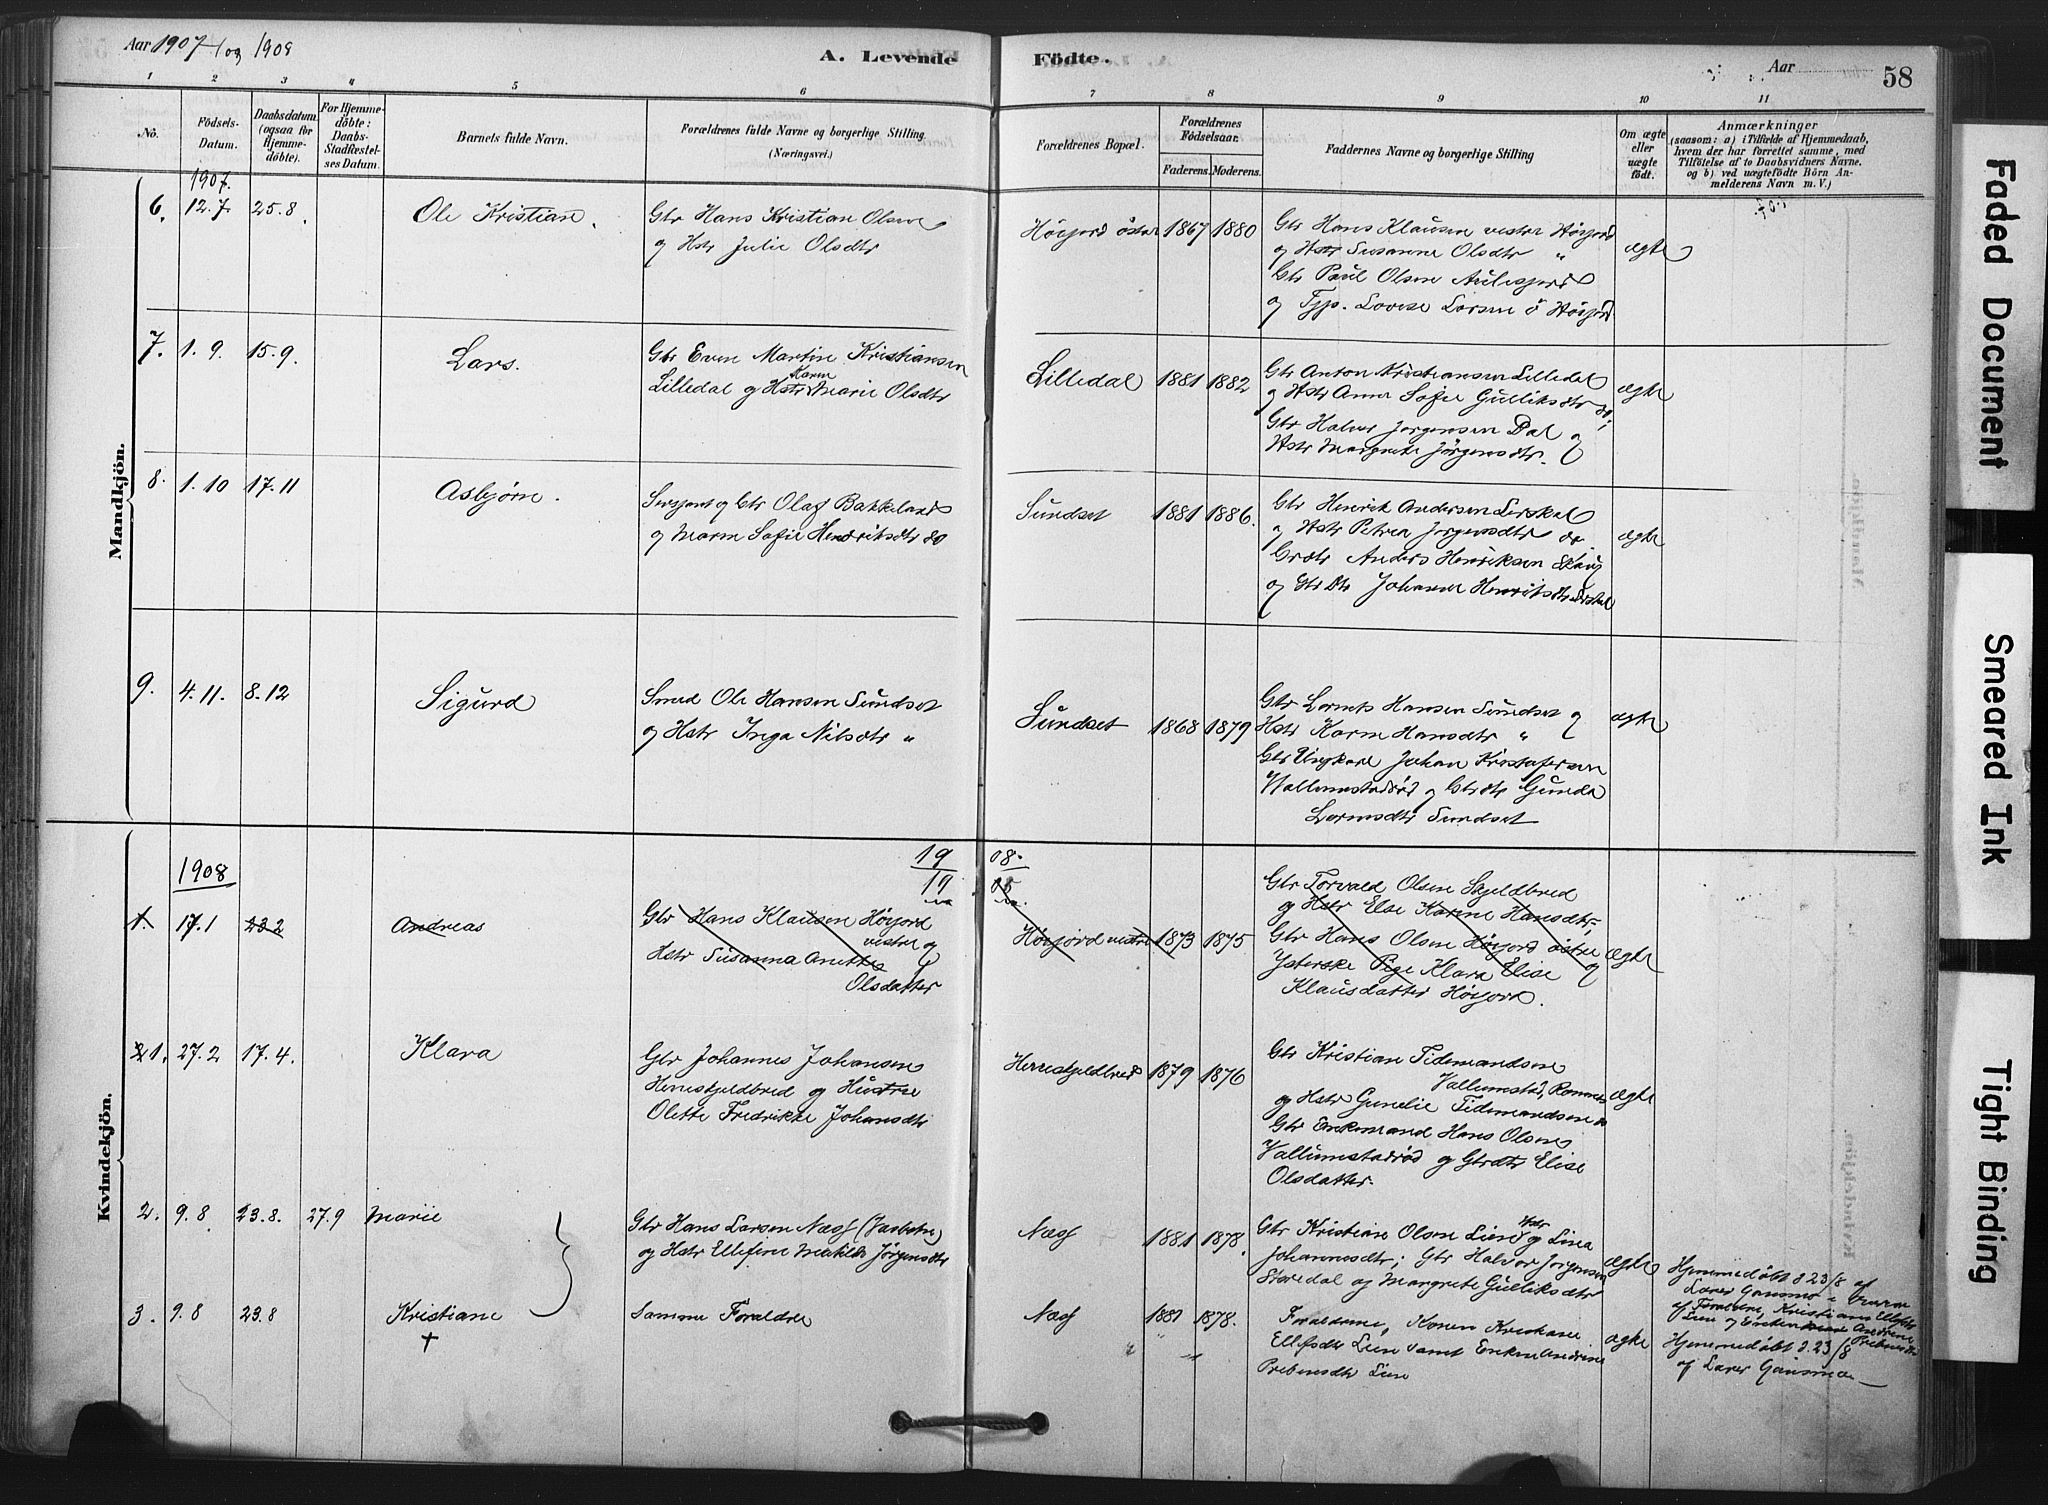 Aar 1907 og 1908
A. Levende
Födte.
Aar
58
1 2 3 4 5 6 7 8 9 10 11
No.
Födsels-Datum.
Daabsdatum. (ogsaa for Hjemmedöbte).
For Hjemmedöbte: Daabs-Stadfæstelses Datum.
Barnets fulde Navn.
Forældrenes fulde Navne og borgerlige Stilling. (Næringsvei.)
Forældrenes Bopæl.
Forældrenes Födselsaar.
Faderens. Moderens.
Faddernes Navne og borgerlige Stilling
Om ægte eller uægte födt.
Anmærkninger
(saasom: a) i Tilfælde af Hjemmedaab, hvem der har forrettet samme, med Tilföielse af to Daabsvidners Navne. og b) ved uægtefödte Börn Anmelderens Navn m. V.)
Mandkjön.
1907.
6. 12.7 25.8. Ole Kristian.
Gbr Hans Kristian Olsen
og Hstr Julie Olsdtr
Høijord östre 1867 1880
Gbr Hans Klausen vestre Høijord
og Hstr Susanne Olsdtr "
Gbr Paul Olsen Aulesjord
og Tjp. Lovise Larsen ö Høijord
ægte
7. 1.9. 15.9. Lars.
Gbr Even Martin Kristiansen
Lilledal og Hstr Karen Marie Olsdtr
Lilledal 1881 1882
Gbr Anton Kristiansen Lilledal
og Hstr Anne Sofie Gulliksdtr do;
Gbr Halvor Jørgensen Dal og
Hstr Margrete Jørgensdtr.
ægte
8. 1.10 17.11 Asbjørn.
Sersjant og Gbr Olaf Bakkeland
og Maren Sofie Hendriksdtr do
Sundset 1881 1886.
Gbr Henrik Andersen Lerskal
og Hstr Petrea Jørgensdtr do
Anders Henriksen Skaug
og Gbr Dtr Johanne Henriksdtr Lerskal
ægte
9. 4.11. 8.12 Sigurd
Smed Ole Hansen Sundset
og Hstr Inga Nilsdtr "
Sundset 1868 1879
Gbr Lorents Hansen Sundset og
Hstr Karen Hansdtr "
Gbr Ungkarl Johan Kristofersen
Vallumstadrød og Gbrdtr Gunda
Lorensdtr Sundset
ægte
Kvindekjön.
1908
19 08.
19 08
1. 17.1 23.2 Andreas
Gbr Hans Klausen Høijord
vestre og
Hstr Susanna Anette
Olsdatter
Høijord vestre 1873 1875
Gbr Torvald Olsen Skjeldbred
og Hstr Else Karine Hansdtr,
Gbr Hans Olsen Høijord østre og
Pige Klara Elise
Klausdatter Høijord.
ægte
2 1. 27.2 17.4. Klara
Gbr Johannes Johansen
Herreskjeldbred og Hustru
Olette Fredrikke Johansdtr
Herreskjeldbred 1879 1876
Gbr Kristian Tidemandsen
Vallumstad, Ramnes
og Hstr Gunelie Tidemandsen
Gbr Enkemand Hans Olsen
Vallumstadrød og Gbrdtr Elise
Olsdatter.
ægte
2. 9.8 23.8. 27.9 Marie
Gbr Hans Larsen Næss
og Hstr Ellefine Matilde Jørgensdtr
Næss 1881 1878.
Gbr Kristian Olsen Lien og Hstr Lina
Johannesdtr; Gbr Halvor Jørgensen
Storedal og Margrete Gulliksdtr
ægte
Hjemmedøbt d 23/8 af
Lærer Gansmo i
af Forældre, Kristiane Ellefsdtr
Lien og Enken Andrine
Prebensdtr
3. 9.8 23.8 Kristiane
†
Samme Forældre
Næss 1881 1878.
Forældrene, Konen Kristiane
Ellefsdtr Lien samt Enken Andrine
Prebensdtr Lien
ægte
Hjemmedøbt d. 23/8
af Lærer Gansmo
Faded Document
Smeared Ink
Tight Binding